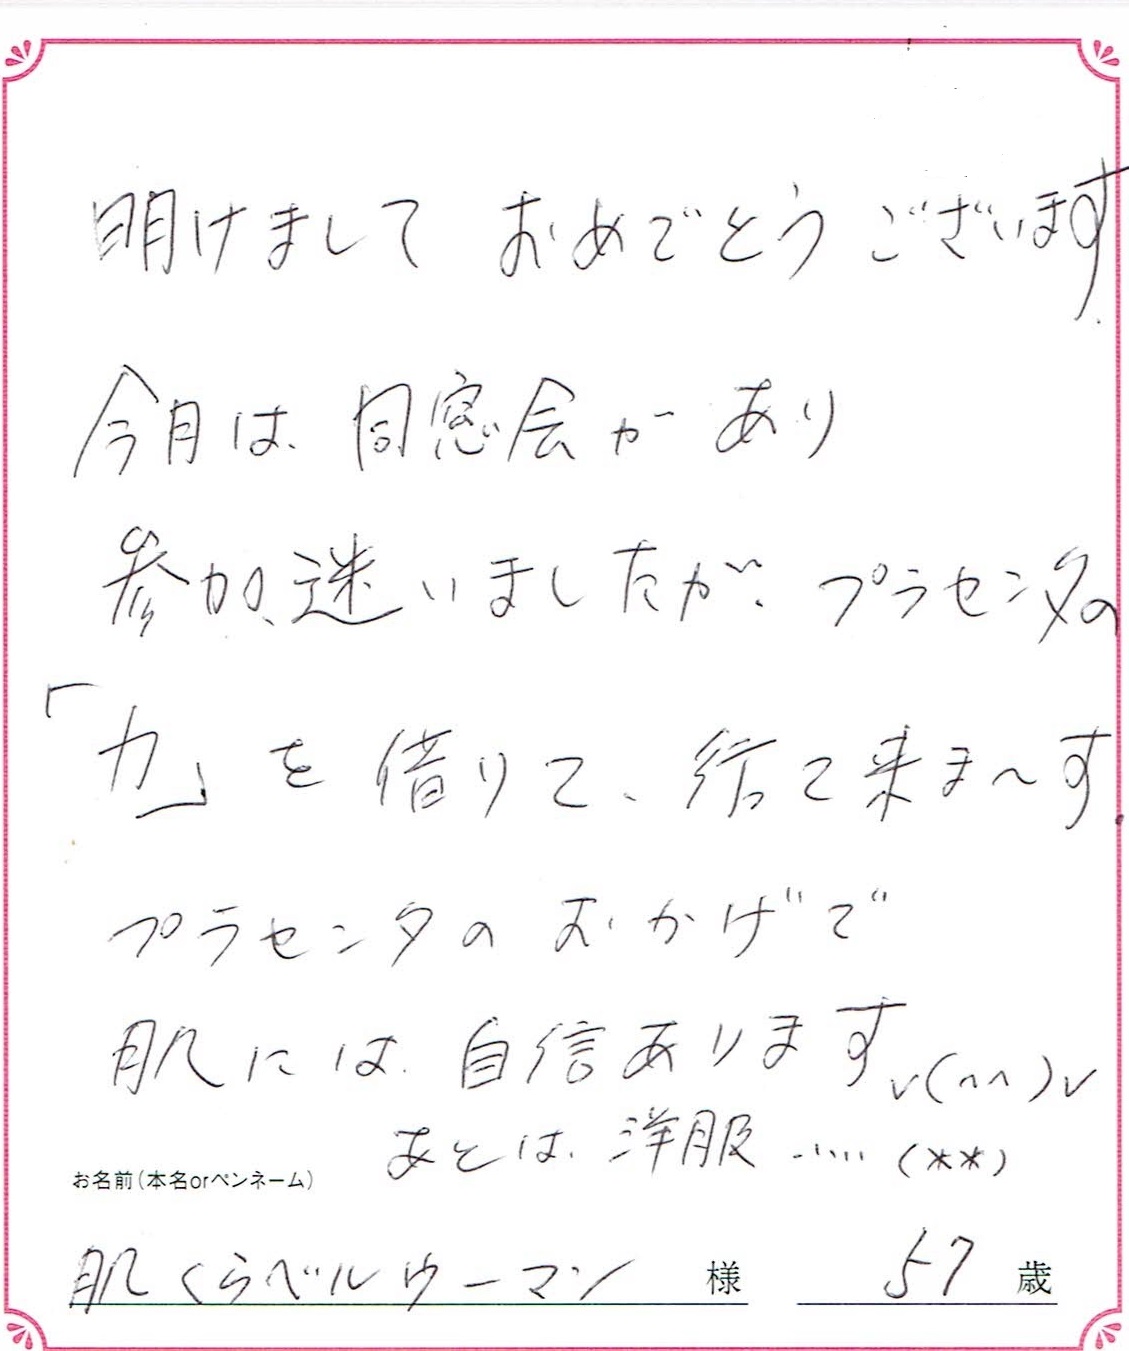 明けまして おめでとう ございます
今月は、同窓会が あり
参加、迷いましたが、プラセンタの
「力」を 借りて、行って来ま〜す
プラセンタの おかげで
肌には、自信あります v(^^)v
あとは、洋服 ‥‥‥ (**)
お名前(本名orペンネーム)
肌くらべルウーマン 様 57 歳